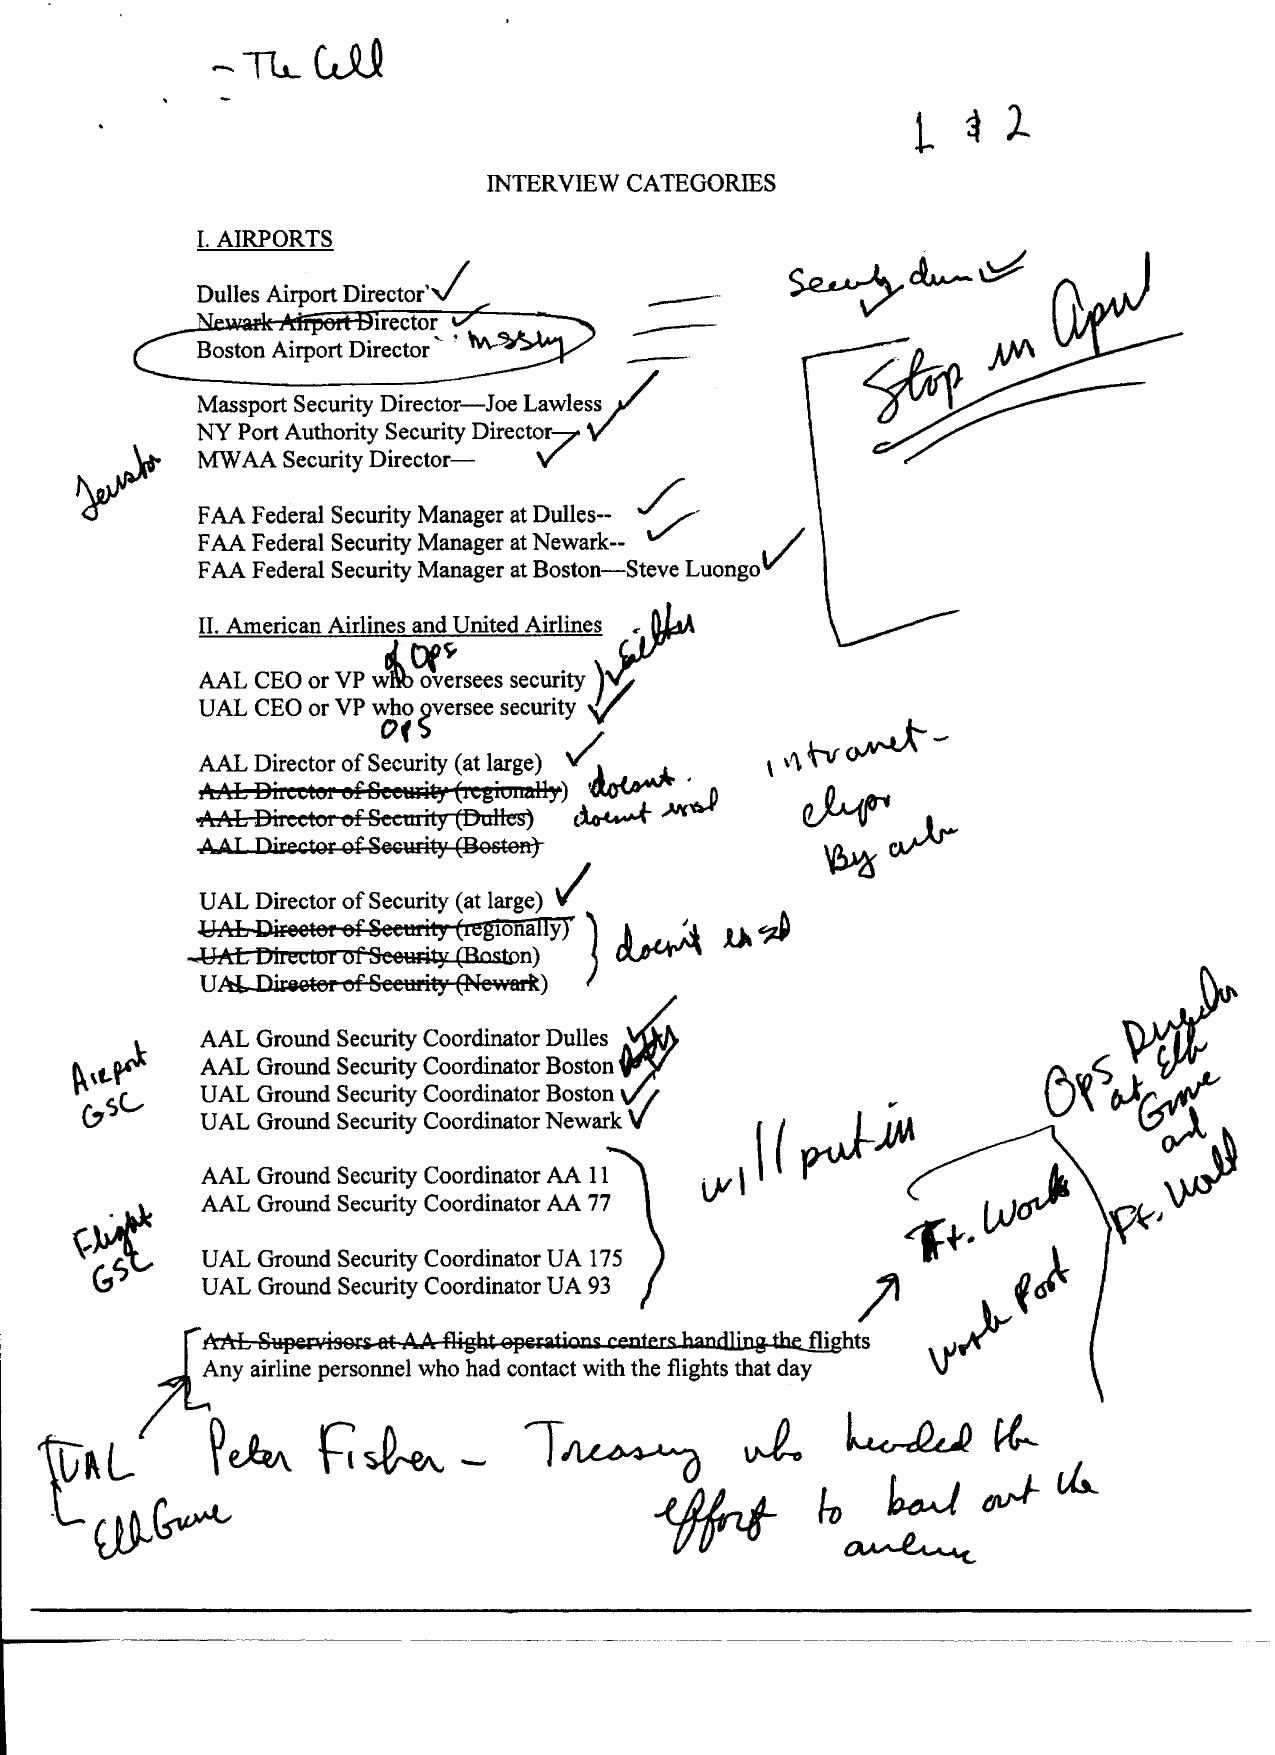 - The Cell
1 & 2
INTERVIEW CATEGORIES
I. AIRPORTS
Security
Dulles Airport Director
Newark Airport Director
Boston Airport Director missing
Stop in April
Massport Security Director—Joe Lawless
NY Port Authority Security Director—
MWAA Security Director—
FAA Federal Security Manager at Dulles--
FAA Federal Security Manager at Newark--
FAA Federal Security Manager at Boston—Steve Luongo
II. American Airlines and United Airlines
of Ops
Either
AAL CEO or VP who oversees security
UAL CEO or VP who oversee security
OPS
AAL Director of Security (at large)
AAL Director of Security (regionally) doesnt
AAL Director of Security (Dulles) doesnt exist
AAL Director of Security (Boston)
intranet -
By
UAL Director of Security (at large)
UAL Director of Security (regionally)
UAL Director of Security (Boston) doesn't exist
UAL Director of Security (Newark)
Airport
GSC
AAL Ground Security Coordinator Dulles
AAL Ground Security Coordinator Boston
UAL Ground Security Coordinator Boston
UAL Ground Security Coordinator Newark
Ops Director
at Elk
Grove
and
Ft. Worth
will put in
Flight
GSC
AAL Ground Security Coordinator AA 11
AAL Ground Security Coordinator AA 77
UAL Ground Security Coordinator UA 175
UAL Ground Security Coordinator UA 93
Ft. Worth
AAL Supervisors at AA flight operations centers handling the flights
Any airline personnel who had contact with the flights that day
UAL
Elk Grove
Peter Fisher - Treasury who headed the
effort to bail out the
airline